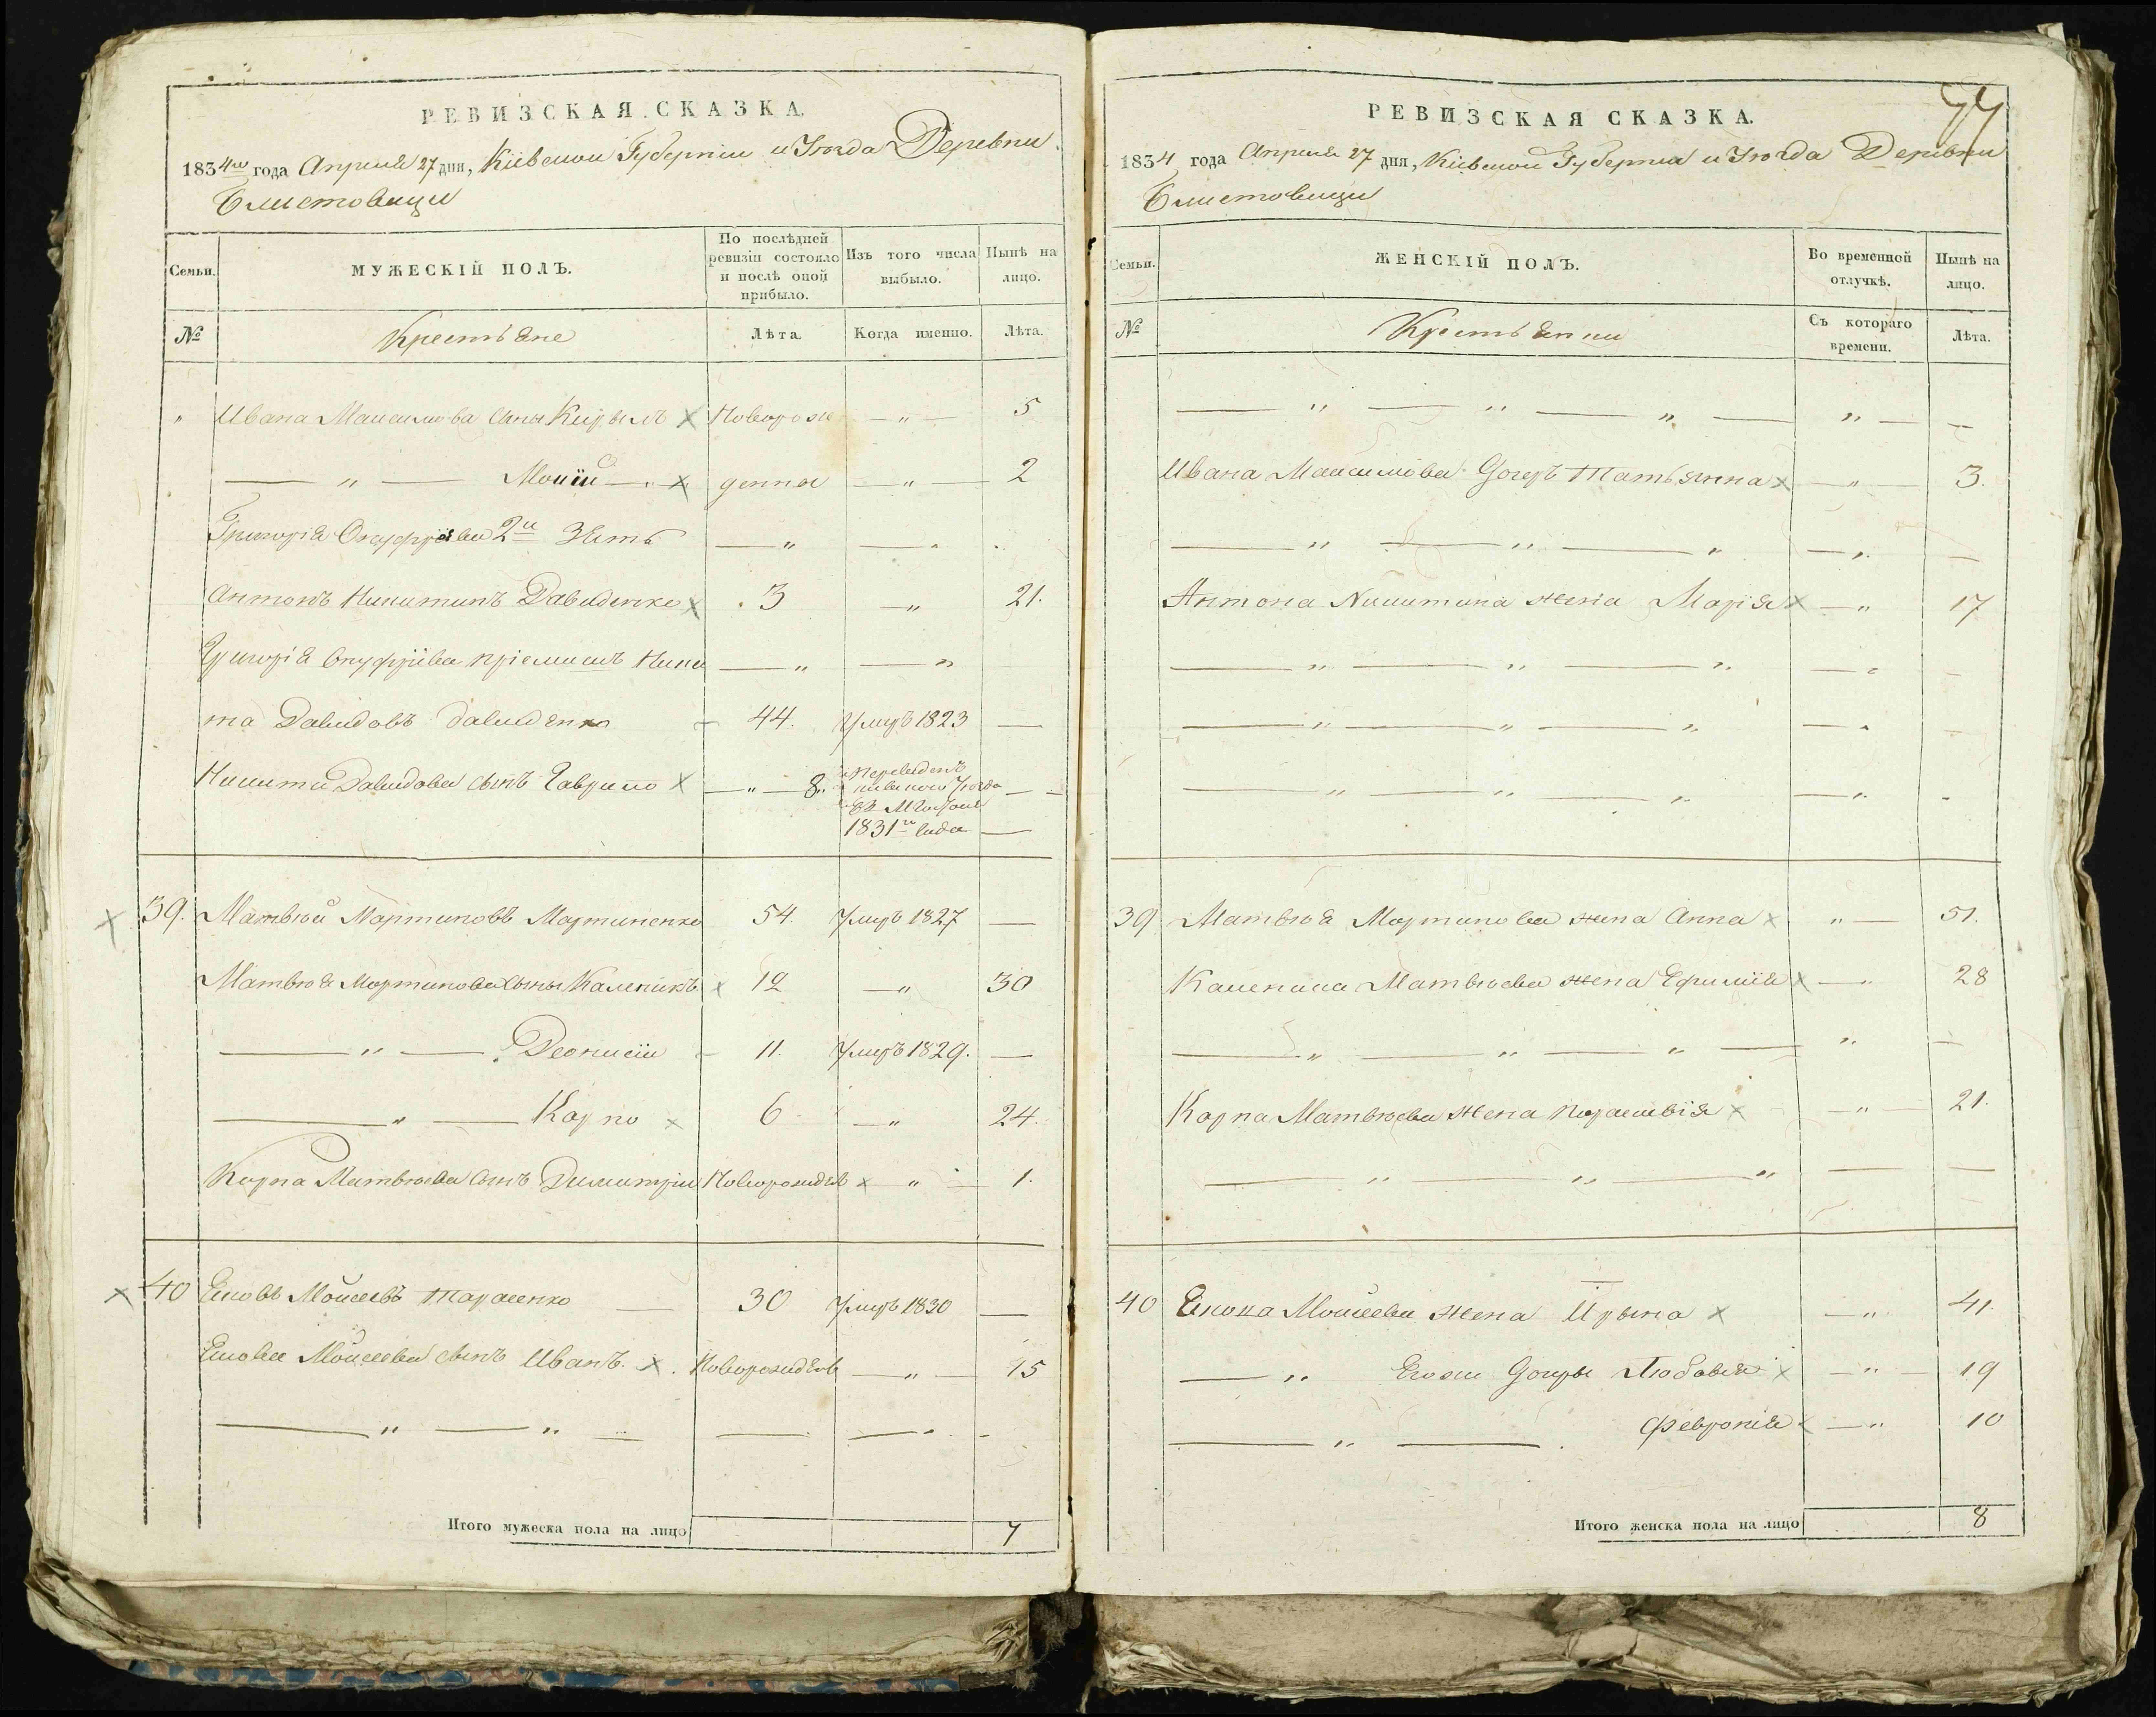 РЕВИЗСКАЯ СКАЗКА.
1834го года Апреля 27 дня, Кіевской Губерніи и Уѣзда Деревни
Блистовици
Семьи.
МУЖЕСКІЙ ПОЛЪ.
По послѣдней ревизіи состояло и послѣ оной прибыло.
Изъ того числа выбыло.
Нынѣ на лицо.
№
Крестьяне
Лѣта.
Когда именно.
Лѣта.
" Ивана Максимова сыны Кирылъ × Новорож — " — 5
— " — Мойсій — × денныя — " — 2
Григорія Онуфріева 2й Зять — " — "
Антонъ Никитинъ Давиденко × 3 — " 21.
Григорія Онуфріева пріемишъ Ники — " — "
та Давидовъ Давиденко — 44. Умръ 1823 —
Никиты Давидова сынъ Гаврило × — " — 8 " Переведенъ
Кіевского Уѣзда — —
1831го Года —
× 39. Матвѣй Мартиновъ Мартиненко 54. Умръ 1827 —
Матвѣя Мартинова сыны Каленикъ × 12 — " 30
— " — Деонисій — 11. Умръ 1829. —
— " — Карпо × 6 — " 24.
Карпа Матвѣева сынъ Димитрій Новорожден × " — 1.
× 40 Яковъ Мойсеевъ Тарасенко — 30 Умръ 1830 —
Якова Мойсеева сынъ Иванъ. × Новорожден — " — 15
— " — " — — — " -
Итого мужеска пола на лицо 7
РЕВИЗСКАЯ СКАЗКА.
1834 года Апреля 27 дня, Кіевской Губерніи и Уѣзда Деревни
Блистовици
Семьи.
ЖЕНСКІЙ ПОЛЪ.
Во временной отлучкѣ.
Нынѣ на лицо.
№
Крестьянки
Съ котораго времени.
Лѣта.
— " — " — " — " — —
Ивана Максимова Дочеръ Татьянна × — " — 3.
— " — " — " — " —
Антона Никитина жена Марія × — " 17
— " — " — " — " -
— " — " — " — " -
— " — " — " — " -
39 Матвѣя Мартинова жена Анна × " — 51.
Каленика Матвѣева жена Ефимія × — " 28
— " — " — " — " —
Карпа Матвѣева жена Параскевія × — " 21.
— " — " — " — —
40 Якова Мойсеева жена Ирына × — " 41.
— " Ехъже Дочеры Любовія × — " — 19
— " — Февронія × — " 10
Итого женска пола на лицо 8